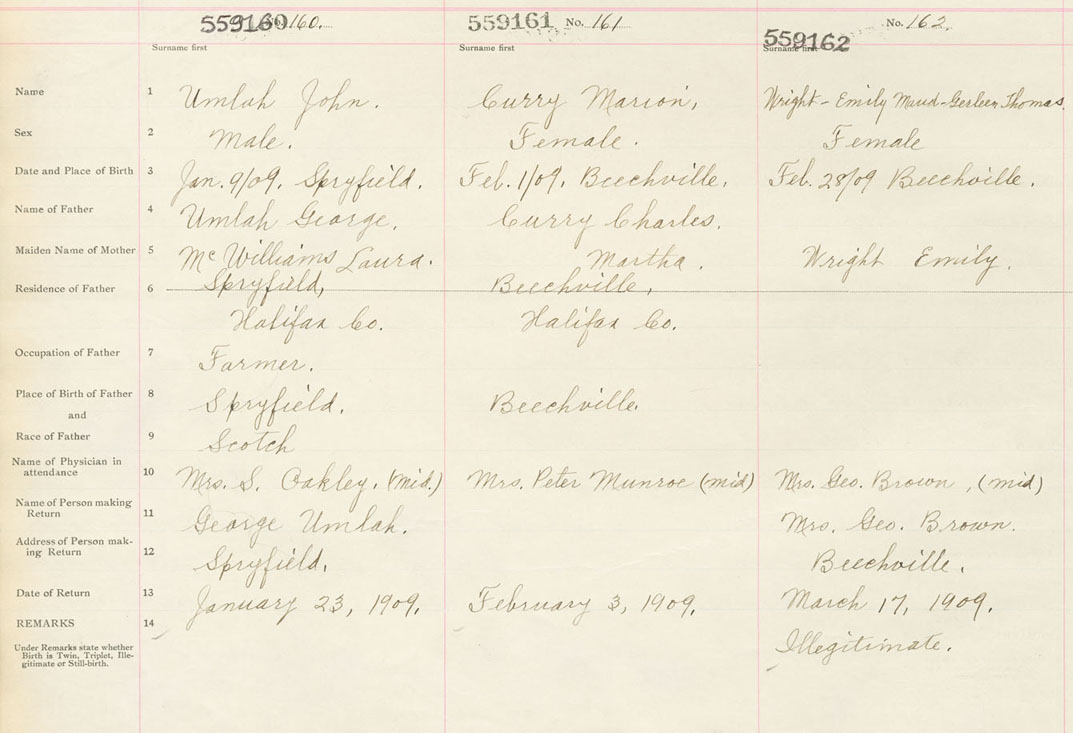 559160 No. 160. 559161 No. 161 559162 No. 162.
Surname first Surname first Surname first
Name 1 Umlah John. Curry Marion, Wright - Emily Maud - Thomas.
Sex 2 Male. Female. Female
Date and Place of Birth 3 Jan. 9/09. Spryfield. Feb. 1/09. Beechville. Feb. 28/09 Beechville.
Name of Father 4 Umlah George. Curry Charles.
Maiden Name of Mother 5 McWilliams Laura. Martha. Wright Emily.
Residence of Father 6 Spryfield, Beechville,
Halifax Co. Halifax Co.
Occupation of Father 7 Farmer.
Place of Birth of Father 8 Spryfield. Beechville.
and
Race of Father 9 Scotch
Name of Physician in
attendance 10 Mrs. S. Oakley. (mid.) Mrs. Peter Munroe (mid) Mrs. Geo. Brown, (mid)
Name of Person making
Return 11 George Umlah. Mrs. Geo. Brown.
Address of Person mak-
ing Return 12 Spryfield. Beechville.
Date of Return 13 January 23, 1909. February 3, 1909. March 17, 1909.
REMARKS 14
Under Remarks state whether Illegitimate.
Birth is Twin, Triplet, Ille-
gitimate or Still-birth.